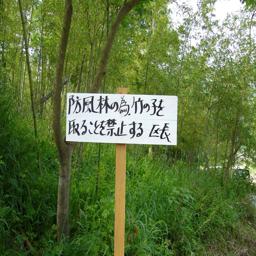 防風林の為、竹の子を
取ることを禁止する 区長